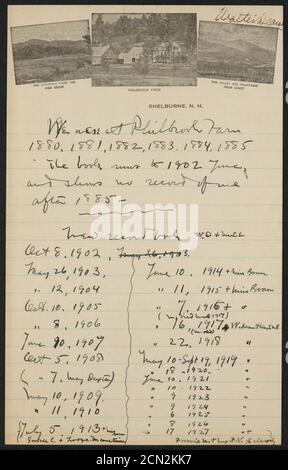 THE ANDROSCOGGIN FROM THE PINE GROVE
PHILBROOK FARM
THE VALLEY AND MOUNTAINS FROM LEDGE
SHELBURNE, N. H.
We were at Philbrook Farm
1880, 1881, 1882, 1883, 1884, 1885
The book runs to 1902 June,
and shows no record of me
after 1885 —
New record book
Oct 8, 1902, May 26, 1903.
May 26, 1903.
" 12, 1904
Oct. 10. 1905
" 8, 1906
June 20, 1907
Oct 5, 1908
( " 7. Miss Dexter)
May 10, 1909
" 11, 1910
July 5, 1913
June 10, 1914 + Miss Brown
" 11, 1915 + Miss Brown
" 7, 1916 +
" 16, 1917
" 22, 1918 "
May 10 - Sept 19, 1919 "
" 18 - 1920 "
June 10, 1921 "
" 10 1922 "
" 9 1923 "
" 9 1924 "
" 6 1925 "
" 8 1926 "
" 17 1927 "